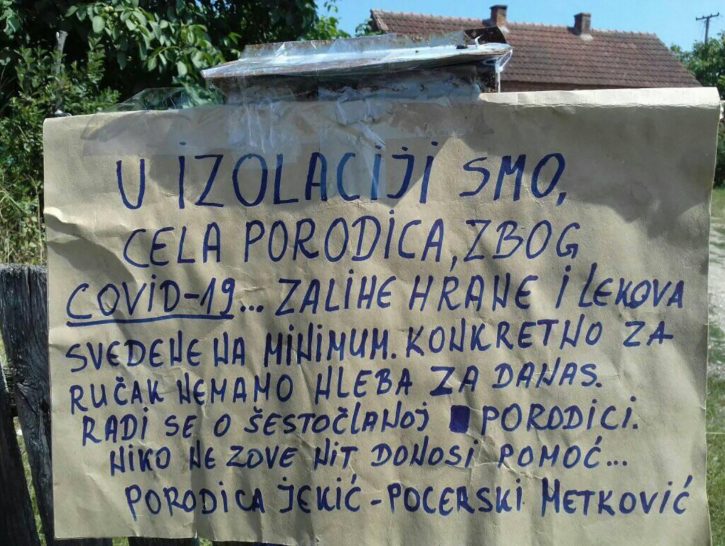 U IZOLACIJI SMO,
CELA PORODICA, ZBOG
COVID-19... ZALIHE HRANE I LEKOVA
SVEDENE NA MINIMUM. KONKRETNO ZA
RUČAK NEMAMO HLEBA ZA DANAS.
RADI SE O ŠESTOČLANOJ PORODICI.
NIKO NE ZOVE NIT DONOSI POMOĆ...
PORODICA JEKIĆ-POCERSKI METKOVIĆ